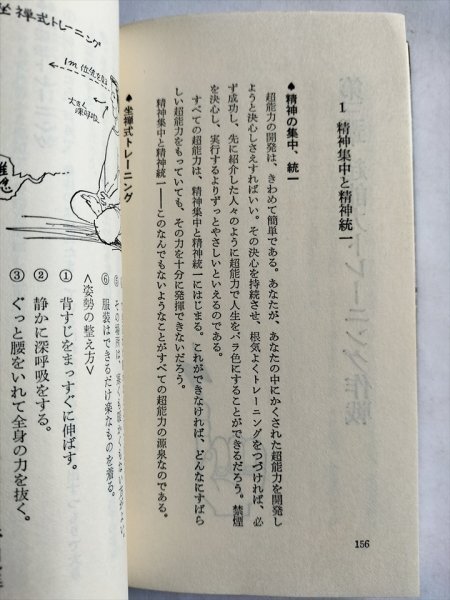 1 精神集中と精神統一
♠精神の集中、統一
超能力の開発は、きわめて簡単である。あなたが、あなたの中にかくされた超能力を開発し
ようと決心しさえすればいい。その決心を持続させ、根気よくトレーニングをつづければ、必
ず成功し、先に紹介した人々のように超能力で人生をバラ色にすることができるだろう。禁煙
を決心し、実行するよりずっとやさしいといえるのである。
すべての超能力は、精神集中と精神統一にはじまる。これができなければ、どんなにすばら
しい超能力をもっていても、その力を十分に発揮できないだろう。
精神集中と精神統一――このなんでもないようなことがすべての超能力の源泉なのである。
♠坐禅式トレーニング
156
坐禅式トレーニング
1m位先を
⑥ 服装はできるだけ楽なものを着る。
<姿勢の整え方>
① 背すじをまっすぐに伸ばす。
② 静かに深呼吸をする。
③ ぐっと腰をいれて全身の力を抜く。